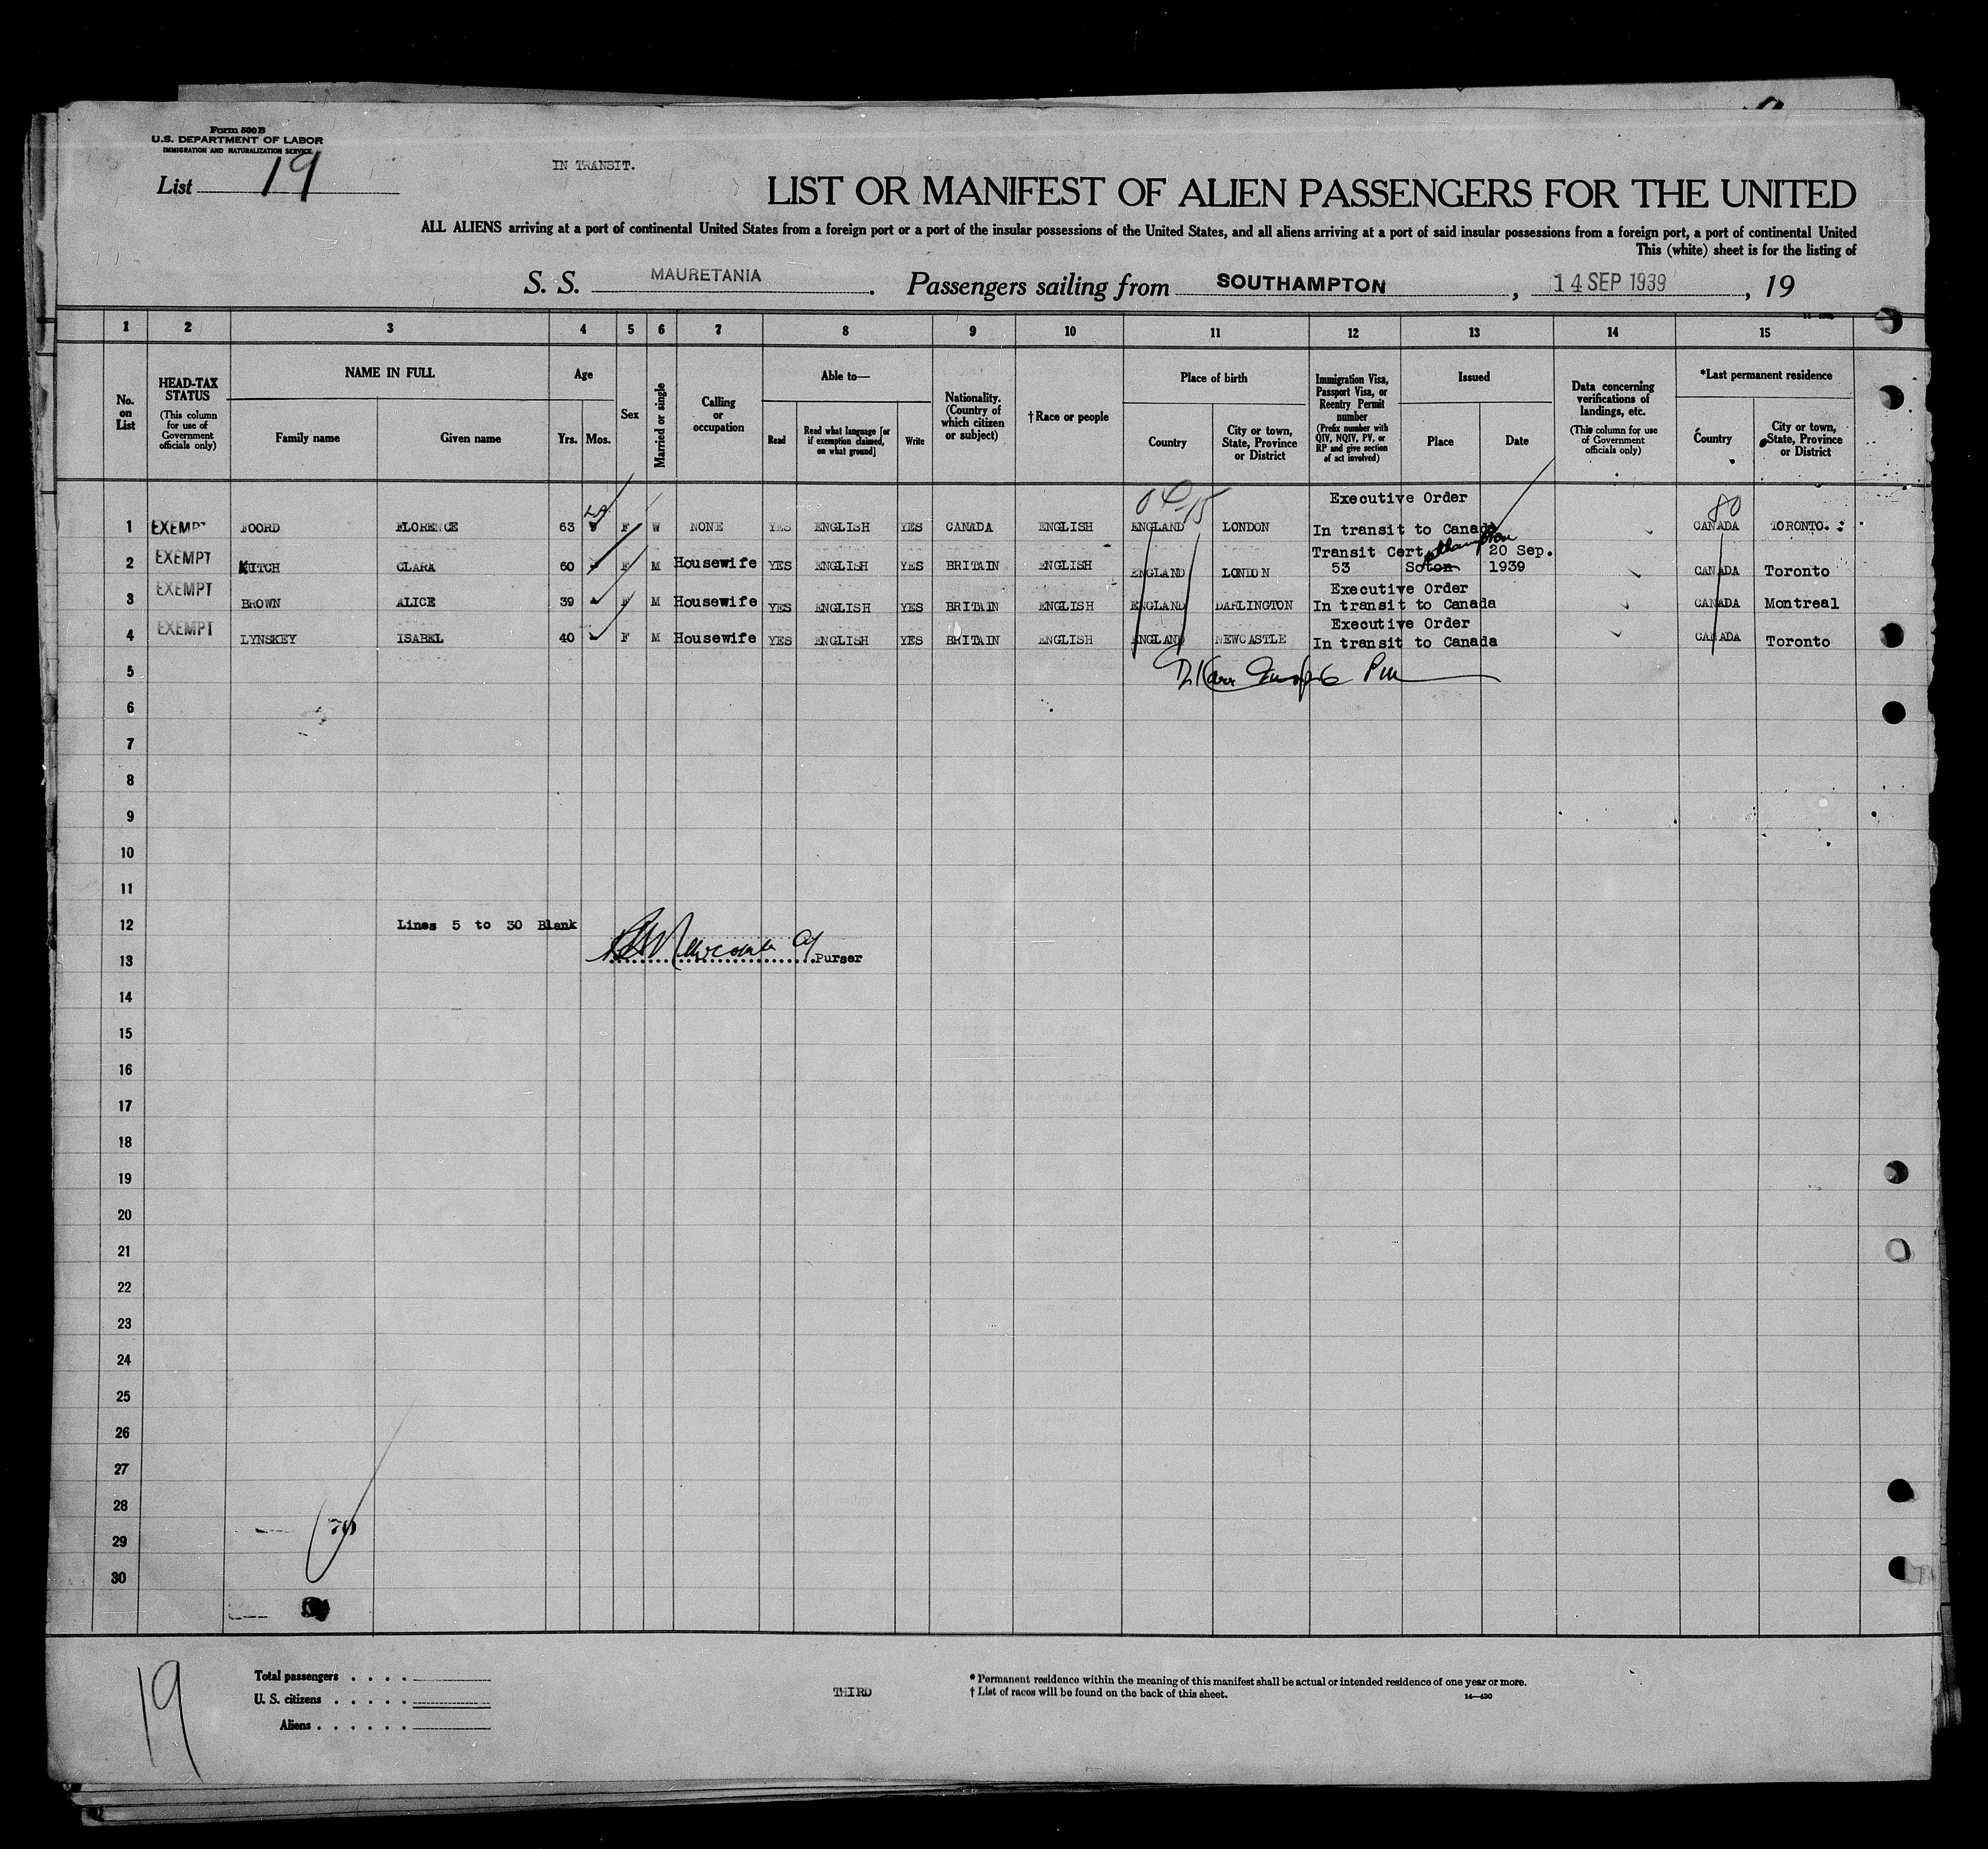 Form 500 B
U.S. DEPARTMENT OF LABOR
IMMIGRATION AND NATURALIZATION SERVICE
List 19
IN TRANSIT.
LIST OR MANIFEST OF ALIEN PASSENGERS FOR THE UNITED
ALL ALIENS arriving at a port of continental United States from a foreign port or a port of the insular possessions of the United States, and all aliens arriving at a port of said insular possessions from a foreign port, a port of continental United
This (white) sheet is for the listing of
S. S. MAURETANIA. Passengers sailing from SOUTHAMPTON, 14 SEP 1939, 19
1 2 3 4 5 6 7 8 9 10 11 12 13 14 15
No. on List
HEAD-TAX STATUS
(This column for use of Government officials only)
NAME IN FULL
Family name
Given name
Age
Yrs. Mos.
Sex
Married or single
Calling or occupation
Able to—
Read
Read what language [or if exemption claimed, on what ground]
Write
Nationality. (Country of which citizen or subject)
†Race or people
Place of birth
Country
City or town, State, Province or District
Immigration Visa, Passport Visa, or Reentry Permit number
(Prefix number with QIV, NQIV, PV, or RP and give section of act involved)
Issued
Place
Date
Data concerning verifications of landings, etc.
(This column for use of Government officials only)
*Last permanent residence
Country
City or town, State, Province or District
Executive Order
80
1 EXEMPT FOORD FLORENCE 63 F W NONE YES ENGLISH YES CANADA ENGLISH ENGLAND LONDON In transit to Canada CANADA TORONTO.
Transit Cert. 20 Sep.
2 EXEMPT KITCH CLARA 60 F M Housewife YES ENGLISH YES BRITAIN ENGLISH ENGLAND LONDON 53 Soton 1939 CANADA Toronto
Executive Order
3 EXEMPT BROWN ALICE 39 F M Housewife YES ENGLISH YES BRITAIN ENGLISH ENGLAND DARLINGTON In transit to Canada CANADA Montreal
Executive Order
4 EXEMPT LYNSKEY ISABEL 40 F M Housewife YES ENGLISH YES BRITAIN ENGLISH ENGLAND NEWCASTLE In transit to Canada CANADA Toronto
5
6
7
8
9
10
11
12 Lines 5 to 30 Blank
13 Purser
14
15
16
17
18
19
20
21
22
23
24
25
26
27
28
29
30
19
Total passengers . . . .
U. S. citizens . . . . .
Aliens . . . . . .
THIRD
* Permanent residence within the meaning of this manifest shall be actual or intended residence of one year or more.
† List of races will be found on the back of this sheet.
14—430